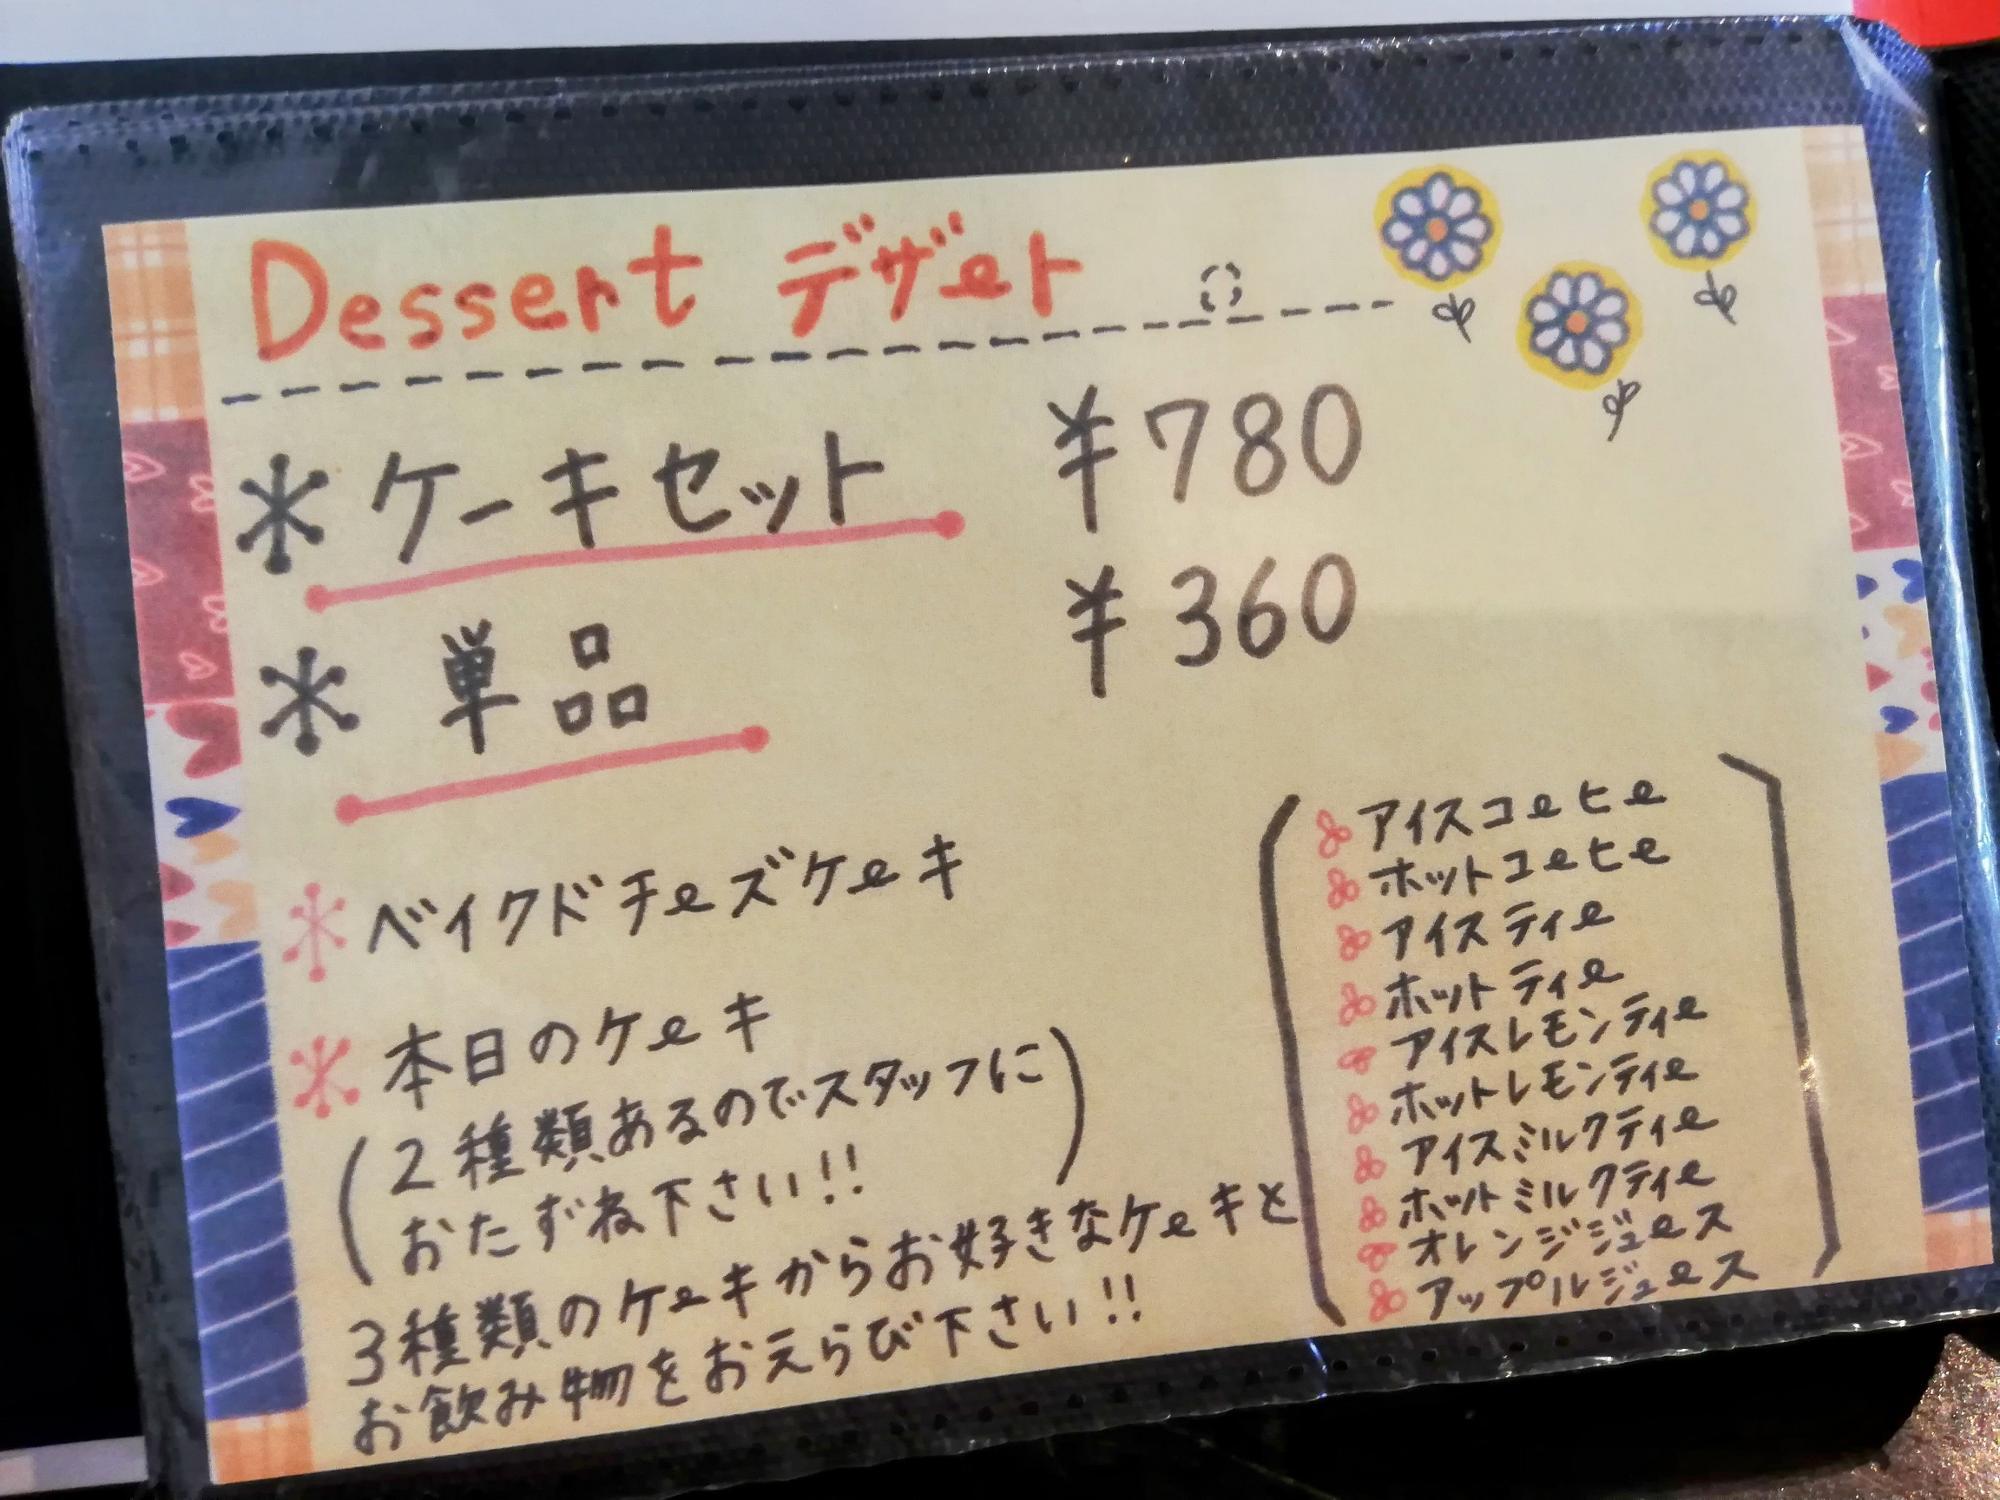 Dessert デザート
ケーキセット ¥780
単品 ¥360
ベイクドチーズケーキ
本日のケーキ
(2種類あるのでスタッフに
おたずね下さい!!)
3種類のケーキからお好きなケーキと
お飲み物をおえらび下さい!!
アイスコーヒー
ホットコーヒー
アイスティー
ホットティー
アイスレモンティー
ホットレモンティー
アイスミルクティー
ホットミルクティー
オレンジジュース
アップルジュース